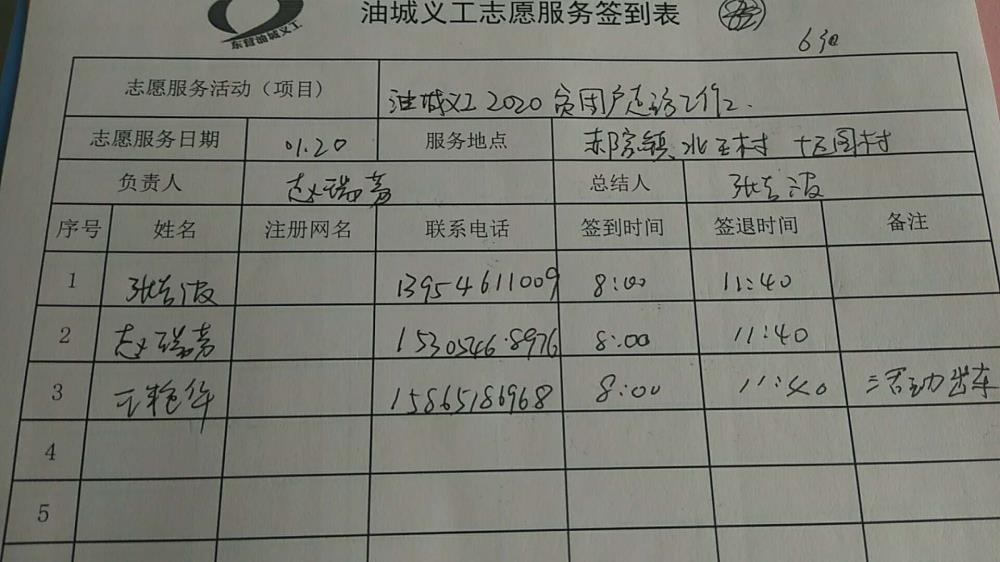 东营油城义工
油城义工志愿服务签到表
6组
志愿服务活动（项目） 油城义工2020贫困户走访工作
志愿服务日期 01.20 服务地点 郝家镇、北王村 十五图村
负责人 赵瑞芳 总结人 张吉波
序号 姓名 注册网名 联系电话 签到时间 签退时间 备注
1 张吉波 13954611009 8:00 11:40
2 赵瑞芳 15305468976 8:00 11:40
3 15865186968 8:00 11:40 活动出车
4
5